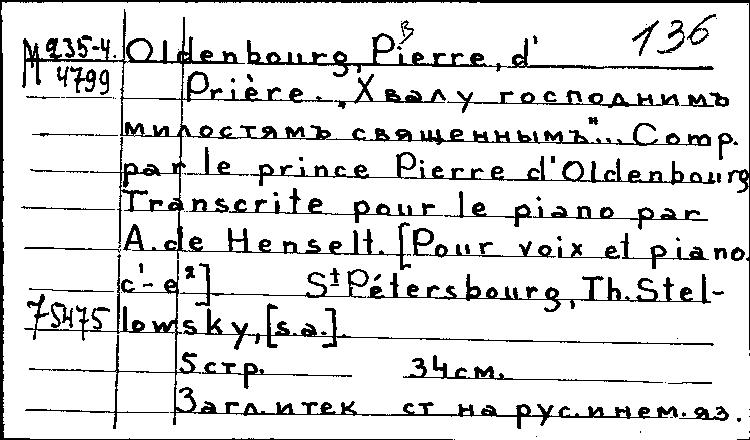 136
М 235-4.
4799
Oldenbourg, Pierre, d'
В
Prière. „Хвалу господнимъ
милостямъ священнымъ"... Comp.
par le prince Pierre d'Oldenbourg
Transcrite pour le piano par
A. de Henselt. [Pour voix et piano.
c¹-e²] St Pétersbourg, Th. Stel-
75475 lowsky, [s.a.].
5 стр. 34 см.
Загл. и тек ст на рус. и нем. яз.